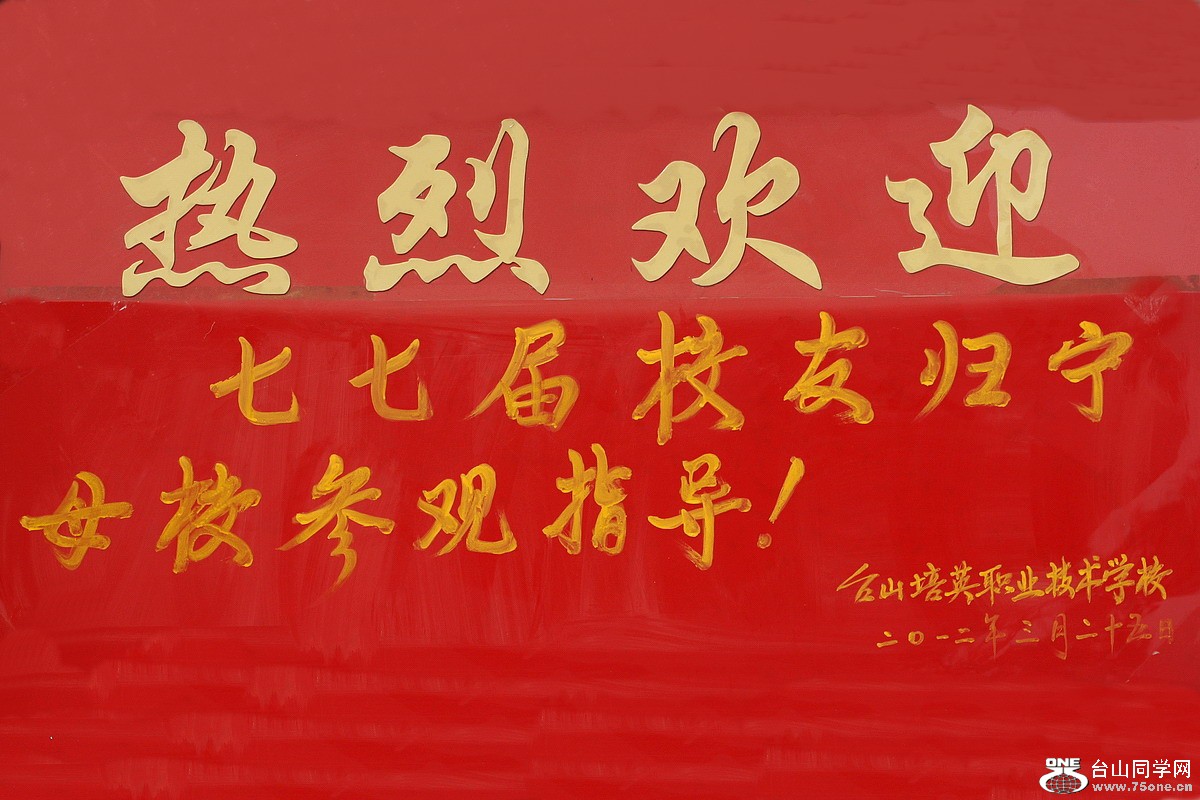 热烈欢迎
七七届校友归宁
母校参观指导!
台山培英职业技术学校
二〇一二年三月二十五日
ONE 台山同学网
www.75one.cn